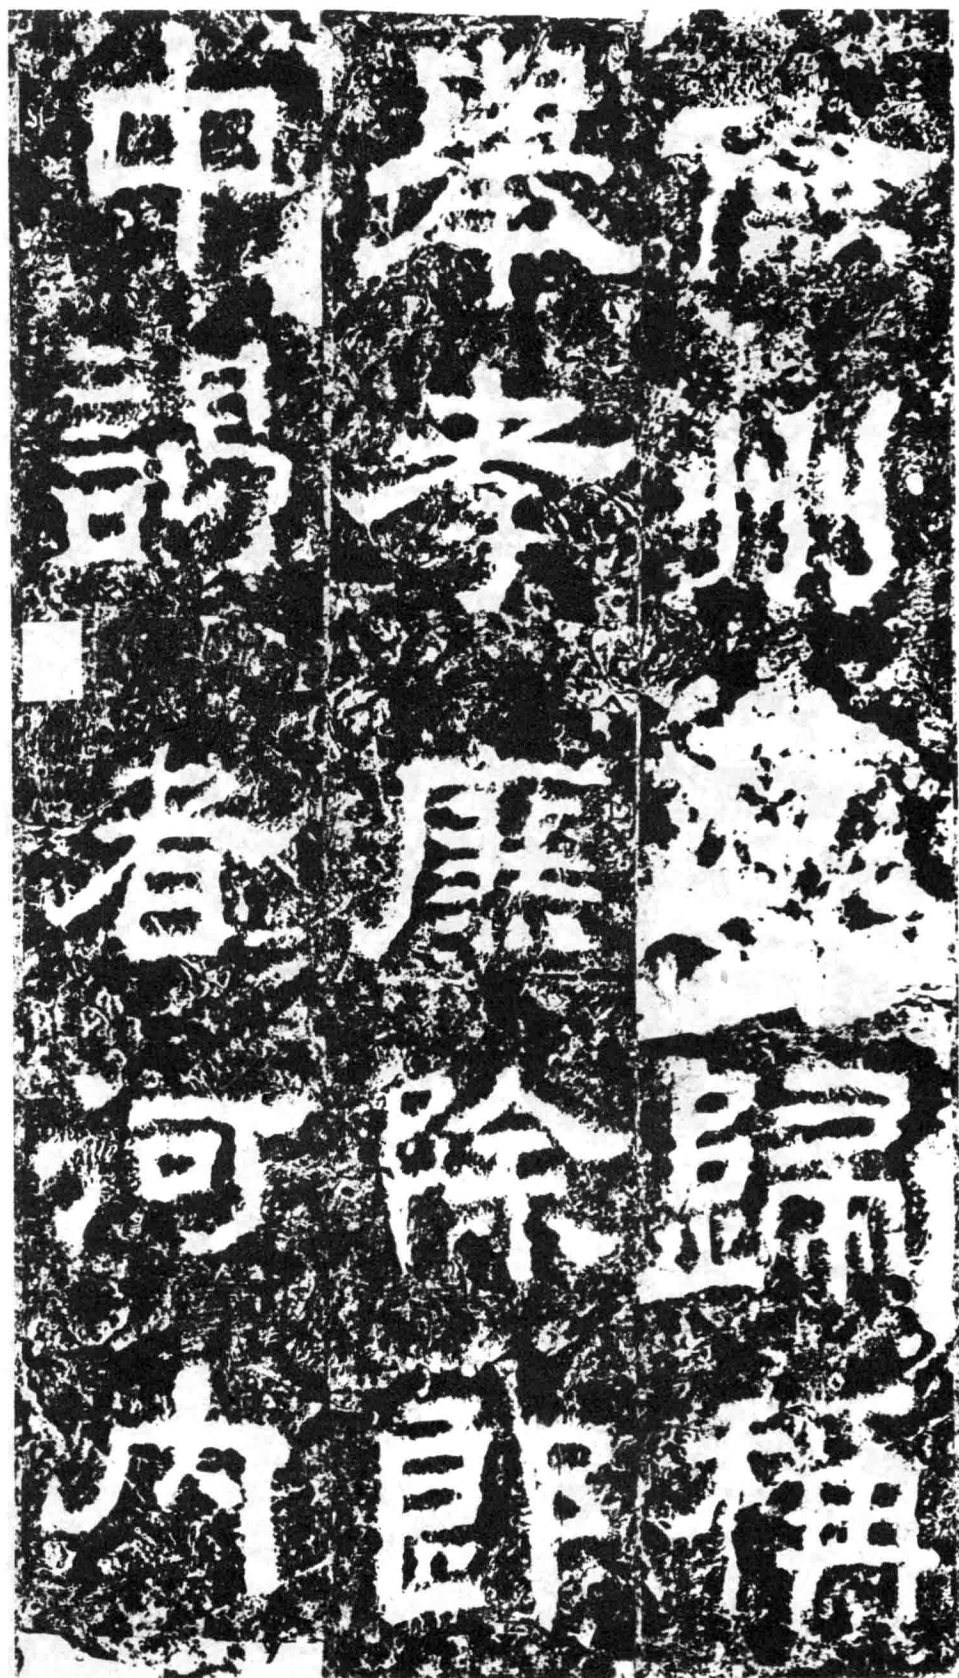 州歸稱
舉孝廉除郎
中謁者河內